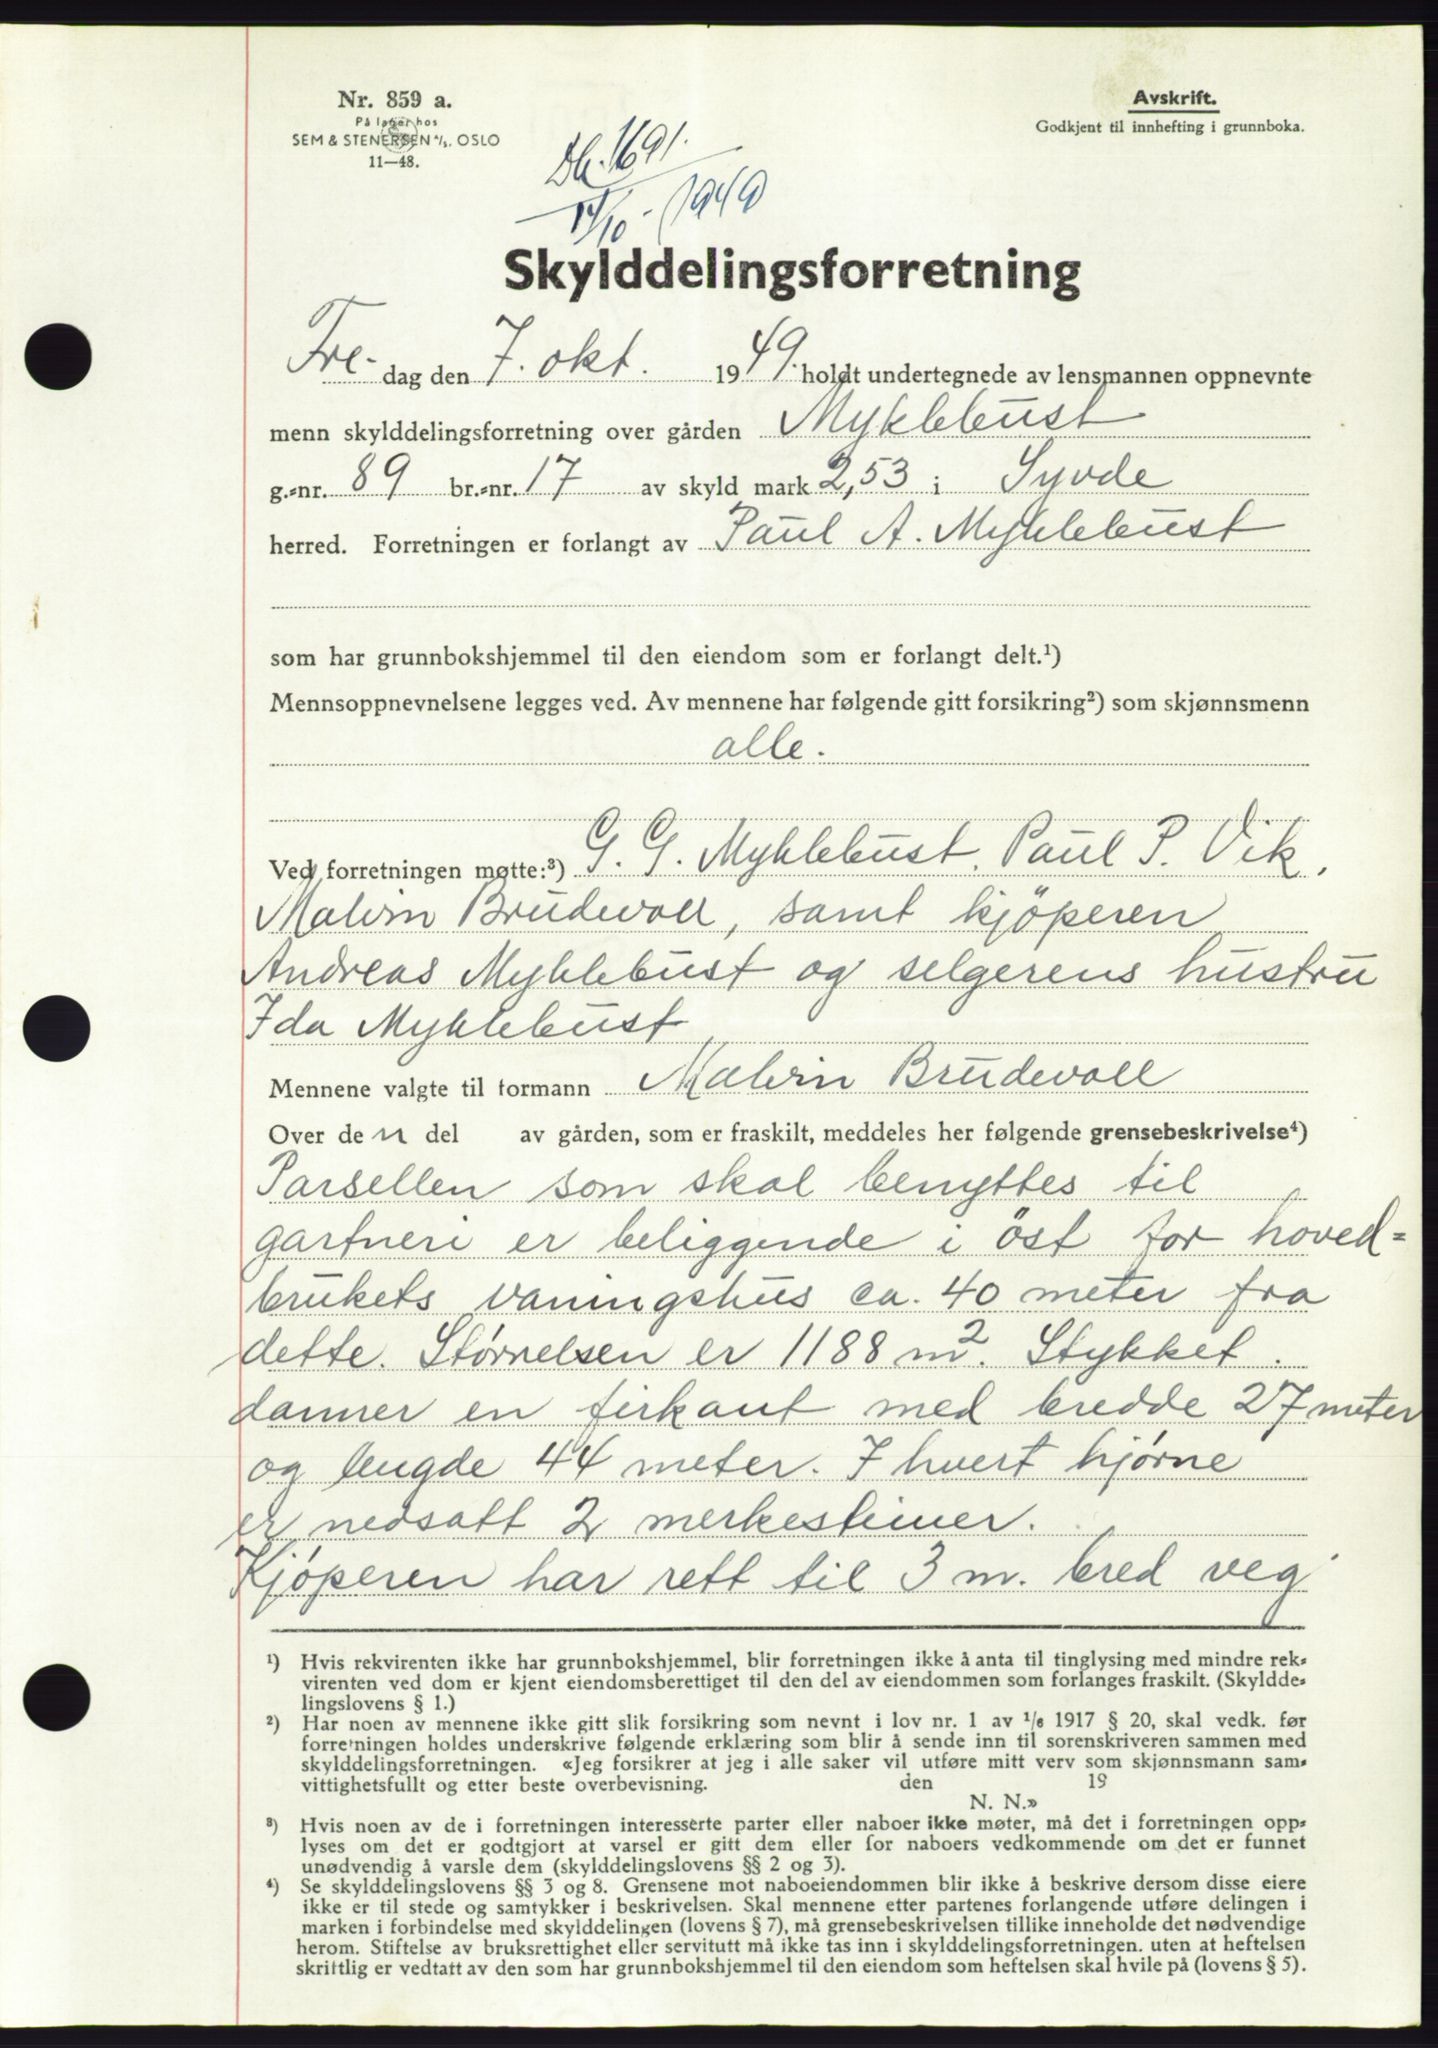 Nr. 859 a.
På lager hos
SEM & STENERSEN A/S. OSLO
11—48.
Avskrift.
Godkjent til innhefting i grunnboka.
Db. 1691.
14/10 - 1949
Skylddelingsforretning
Fre- dag den 7. okt. 1949. holdt undertegnede av lensmannen oppnevnte
menn skylddelingsforretning over gården Myklebust
g.=nr. 89 br.=nr. 17 av skyld mark 2,53 i Syvde
herred. Forretningen er forlangt av Paul A. Myklebust
som har grunnbokshjemmel til den eiendom som er forlangt delt.¹)
Mennsoppnevnelsene legges ved. Av mennene har følgende gitt forsikring²) som skjønnsmenn
alle.
Ved forretningen møtte:³) G. G. Myklebust, Paul P. Vik,
Malvin Brudevoll, samt kjöperen
Andreas Myklebust og selgerens hustru
Ida Myklebust
Mennene valgte til formann Malvin Brudevoll
Over den del av gården, som er fraskilt, meddeles her følgende grensebeskrivelse⁴)
Parsellen som skal benyttes til
gartneri er beliggende i öst for hoved=
brukets vaningshus ca. 40 meter fra
dette. Størrelsen er 1188 m². Stykket
danner en firkant med bredde 27 meter
og lengde 44 meter. I hvert hjørne
er nedsatt 2 merkesteiner.
Kjøperen har rett til 3 m. bred veg
¹) Hvis rekvirenten ikke har grunnbokshjemmel, blir forretningen ikke å anta til tinglysing med mindre rek=
virenten ved dom er kjent eiendomsberettiget til den del av eiendommen som forlanges fraskilt. (Skyldde=
lingslovens § 1.)
²) Har noen av mennene ikke gitt slik forsikring som nevnt i lov nr. 1 av 1/6 1917 § 20, skal vedk. før
forretningen holdes underskrive følgende erklæring som blir å sende inn til sorenskriveren sammen med
skylddelingsforretningen. «Jeg forsikrer at jeg i alle saker vil utføre mitt verv som skjønnsmann sam=
vittighetsfullt og etter beste overbevisning. den 19
N. N.»
³) Hvis noen av de i forretningen interesserte parter eller naboer ikke møter, må det i forretningen opp=
lyses om det er godtgjort at varsel er gitt dem eller for naboers vedkommende om det er funnet
unødvendig å varsle dem (skylddelingslovens §§ 2 og 3).
⁴) Se skylddelingslovens §§ 3 og 8. Grensene mot naboeiendommen blir ikke å beskrive dersom disse eiere
ikke er til stede og samtykker i beskrivelsen. Skal mennene etter partenes forlangende utføre delingen i
marken i forbindelse med skylddelingen (lovens § 7), må grensebeskrivelsen tillike inneholde det nødvendige
herom. Stiftelse av bruksrettighet eller servitutt må ikke tas inn i skylddelingsforretningen. uten at heftelsen
skriftlig er vedtatt av den som har grunnbokshjemmel til den eiendom som heftelsen skal hvile på (lovens § 5).